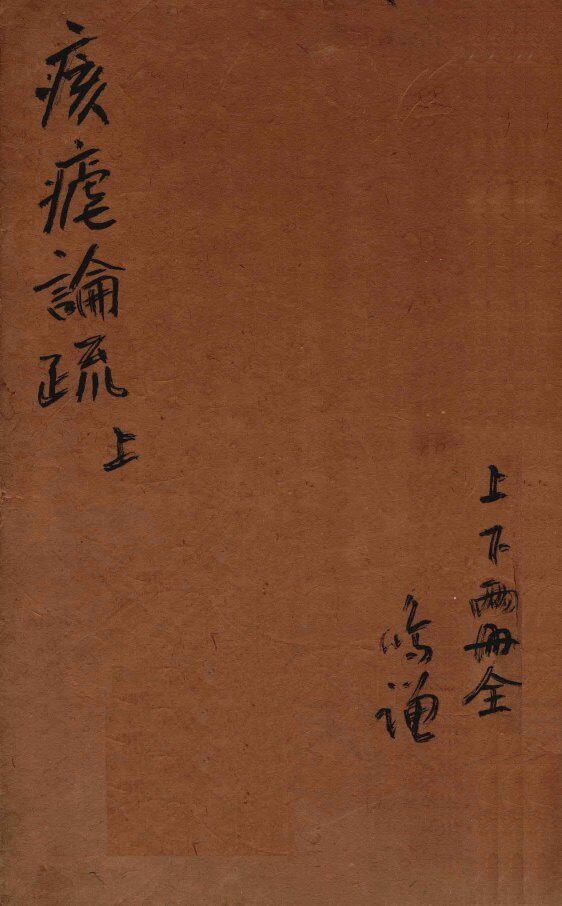 上下兩冊全
鳴
痎瘧論疏
上